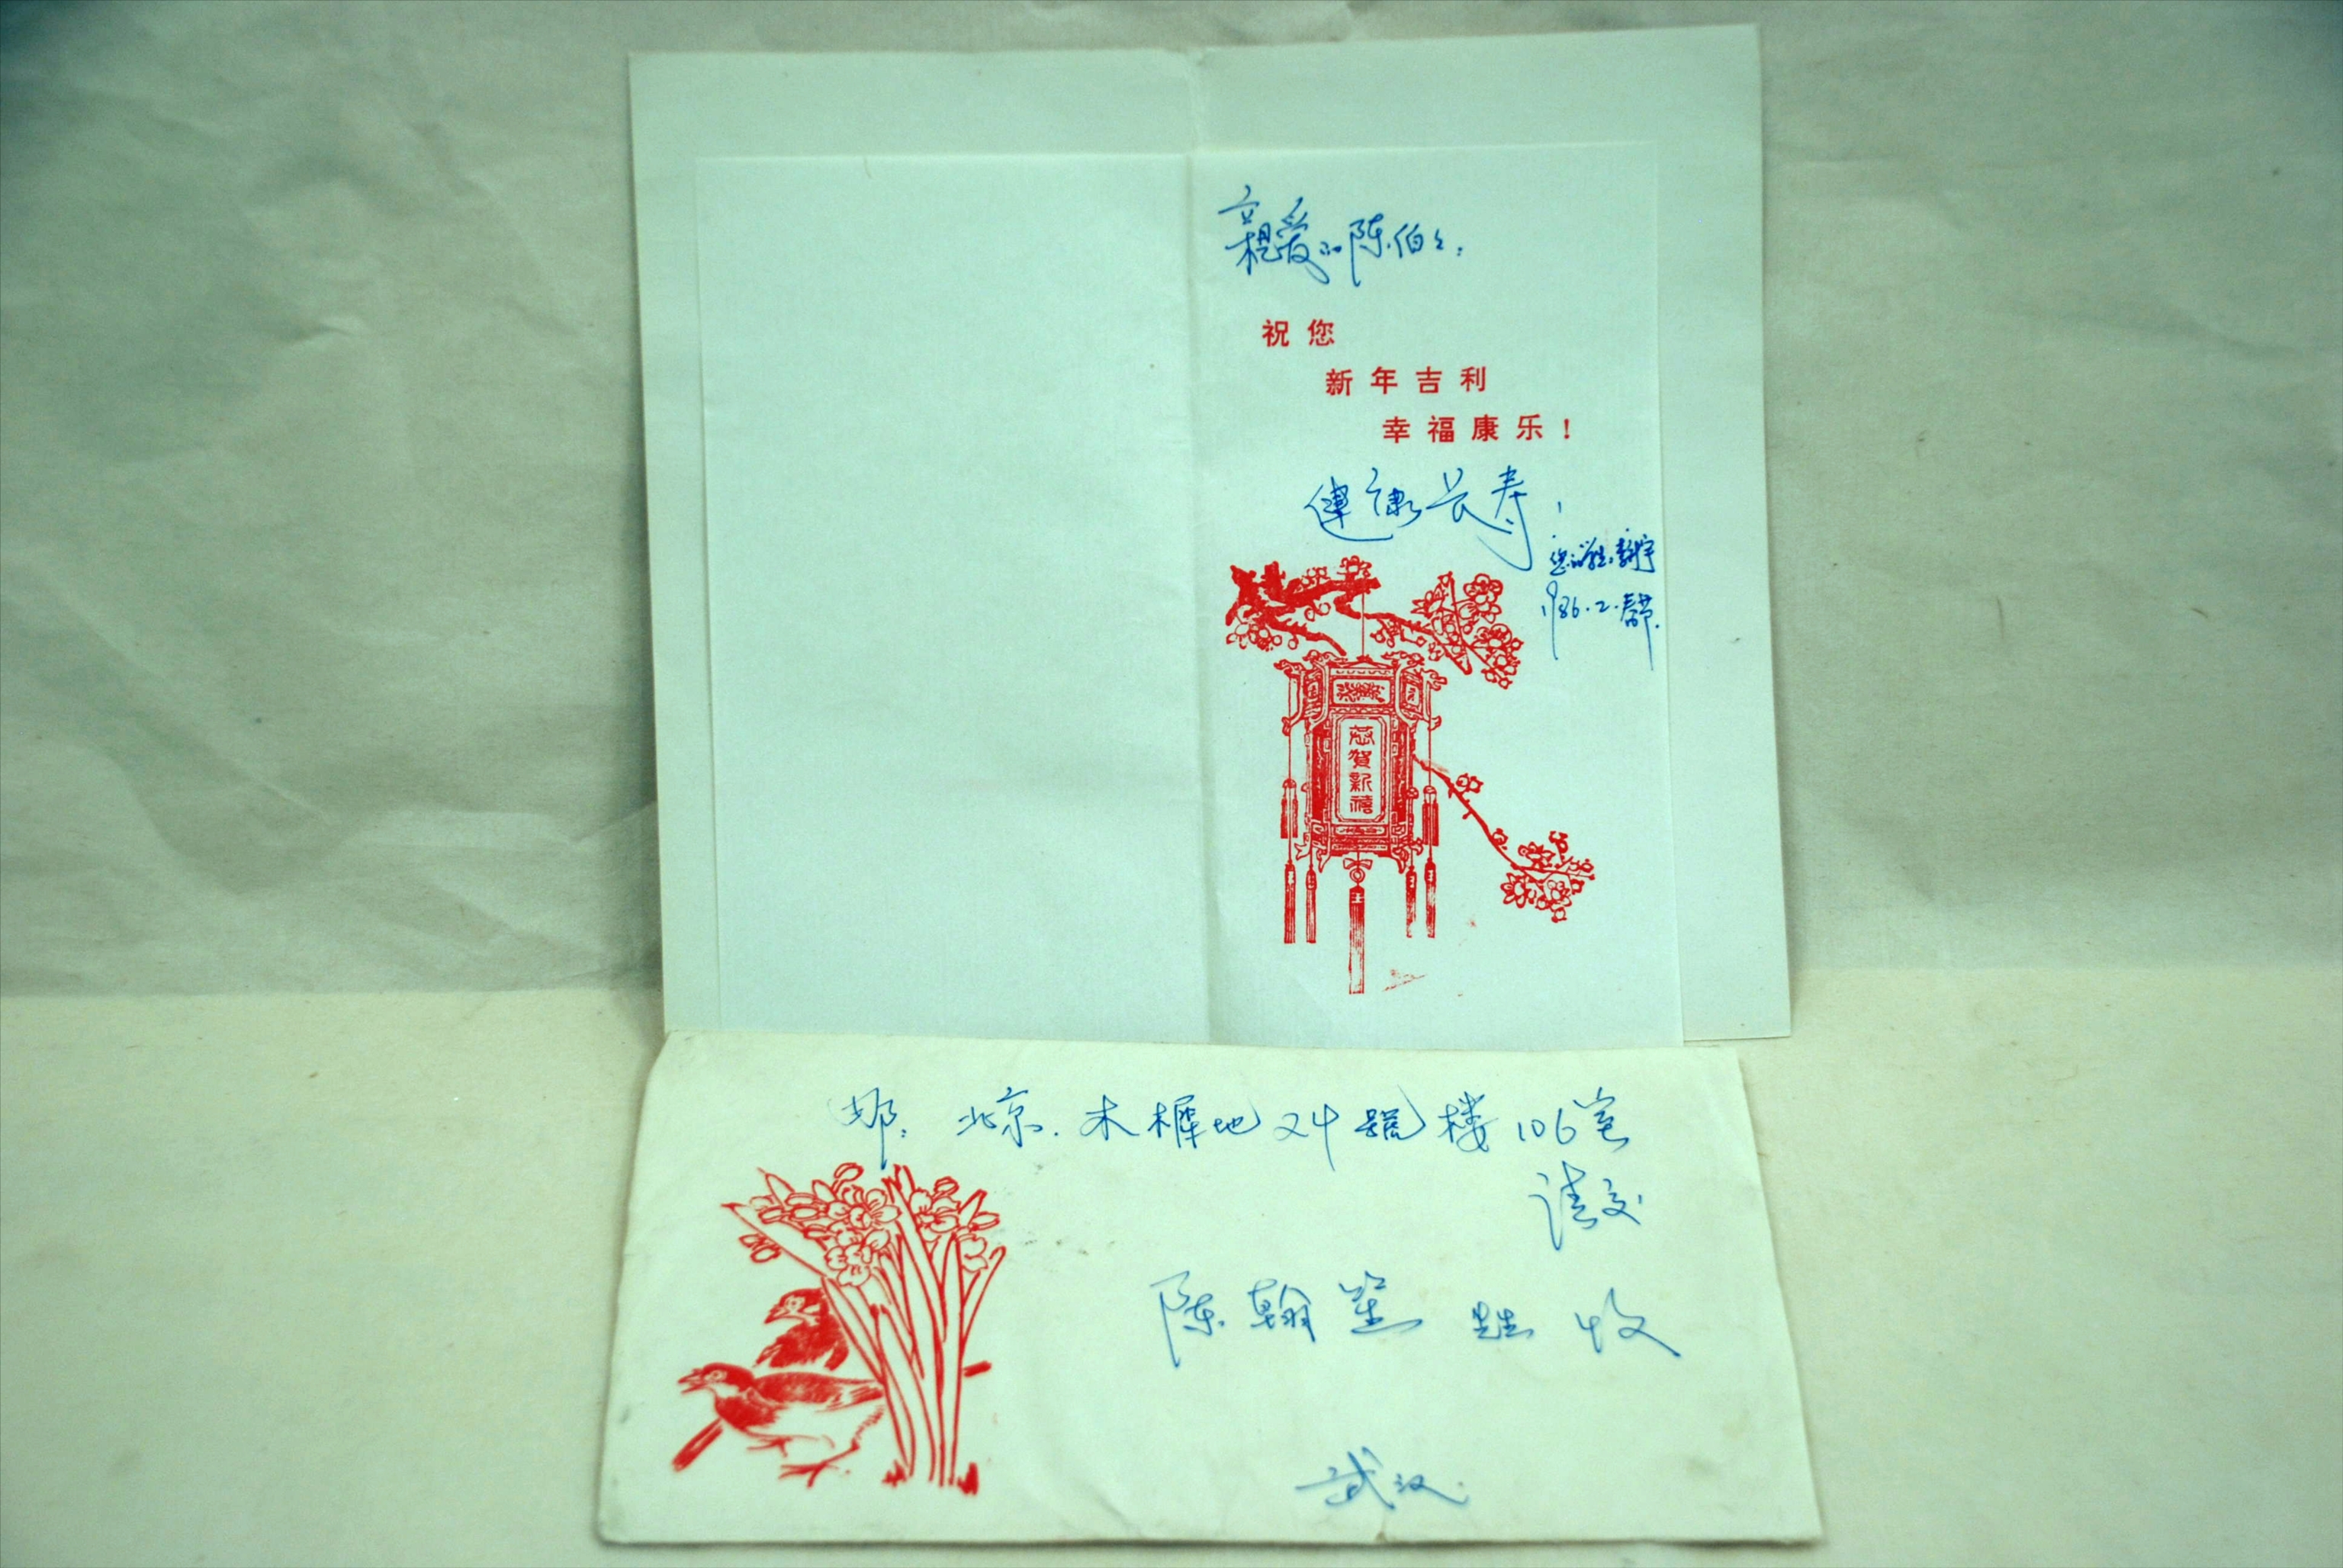 亲爱的陈伯々：
祝您
新年吉利
幸福康乐！
健康长寿！
您的学生
1986.2.春节.
恭贺新禧
北京.木樨地24號楼106室
请交
陈翰笙 先生 收
武汉.